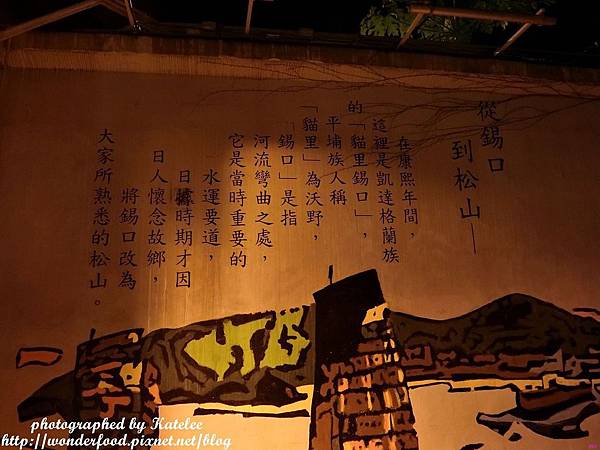 從錫口
到松山—
在康熙年間，
這裡是凱達格蘭族
的「貓里錫口」，
平埔族人稱
「貓里」為沃野，
「錫口」是指
河流彎曲之處，
它是當時重要的
水運要道，
日據時期才因
日人懷念故鄉，
將錫口改為
大家所熟悉的松山。
photographed by Katelee
http://wonderfood.pixnet.net/blog